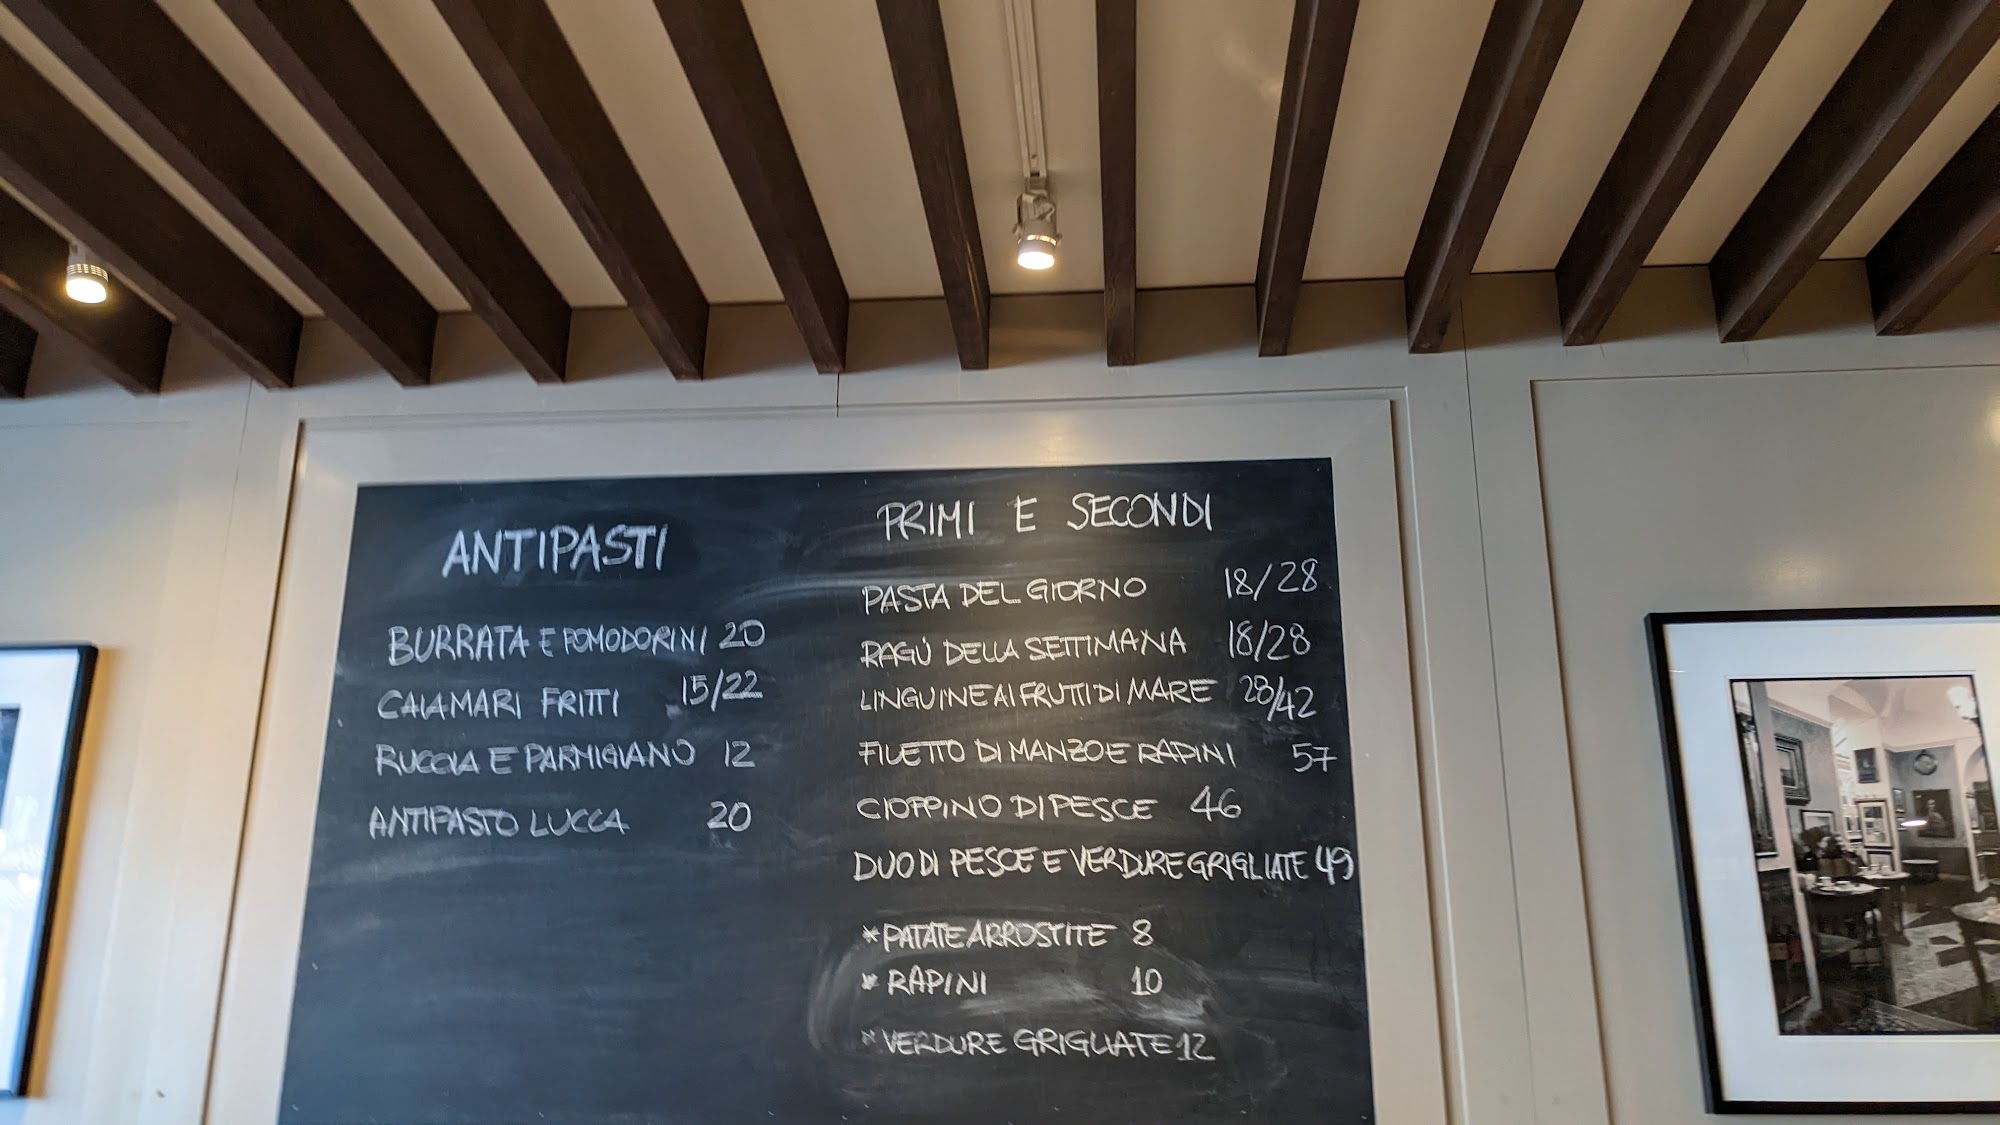 ANTIPASTI
BURRATA E POMODORINI 20
CALAMARI FRITTI 15/22
RUCOLA E PARMIGIANO 12
ANTIPASTO LUCCA 20
PRIMI E SECONDI
PASTA DEL GIORNO 18/28
RAGÙ DELLA SETTIMANA 18/28
LINGUINE AI FRUTTI DI MARE 28/42
FILETTO DI MANZO E RAPINI 57
CIOPPINO DI PESCE 46
DUO DI PESCE E VERDURE GRIGLIATE 49
* PATATE ARROSTITE 8
* RAPINI 10
* VERDURE GRIGLIATE 12